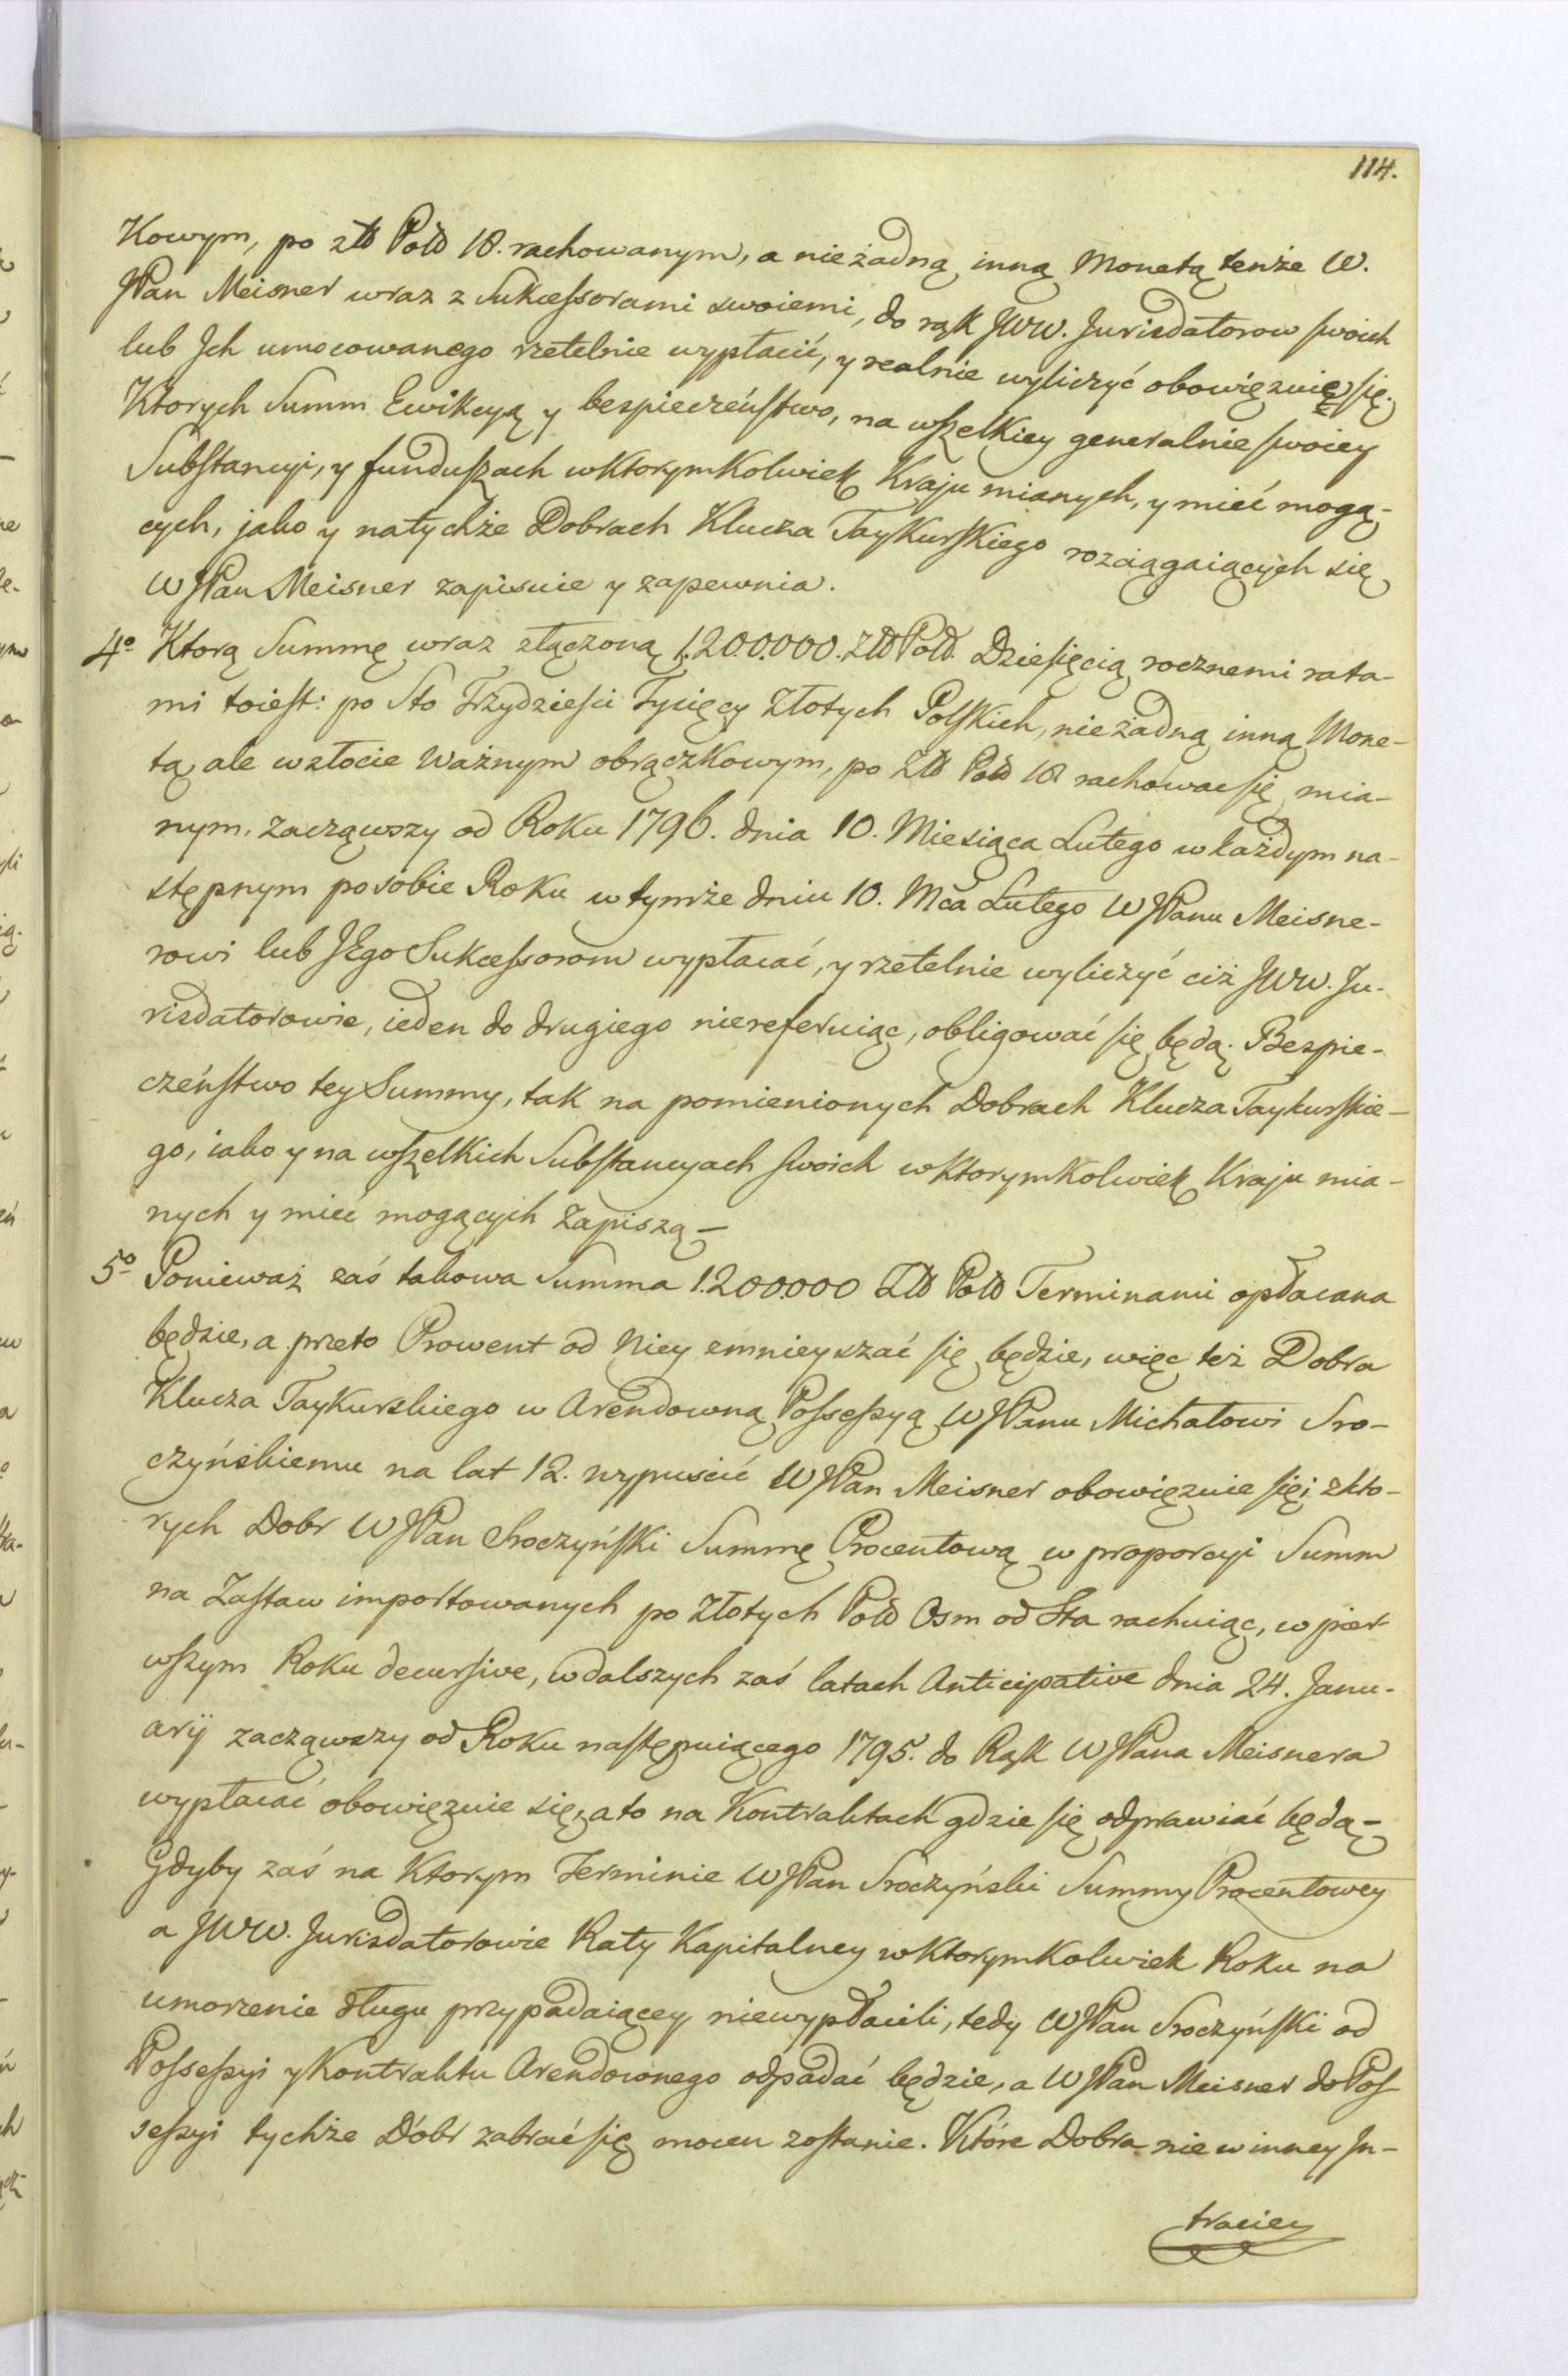 114.
Kowym, po złł Polł 18. rachowanym, a nie żadną inną Monetą tenże W.
JPan Meisner wraz z Sukcessorami swoiemi, do rąk JWW. Jurisdatorow swoich
lub Jch umocowanego rzetelnie wypłacić, y realnie wyliczyć obowięzuię się.
Ktorych Summ Ewikcyą y bespieczeństwo, na wszelkiey generalnie swoiey
Substancyi, y funduszach w ktorymkolwiek Kraju mianych, y mieć mogą-
cych, jako y na tychże Dobrach Klucza Taykurskiego rozciągaiących się
W JPan Meisner zapisuie y zapewnia.
4o Ktorą Summę wraz złączoną 1.200.000. Złł Polł. Dziesięcią rocznemi rata-
mi toiest: po Sto Trzydzieści Tysięcy Złotych Polskich, nie żadną inną Mone-
tą ale w złocie ważnym obrączkowym, po Złł Polł 18 rachować się mia-
nym, zacząwszy od Roku 1796. dnia 10. Miesiąca Lutego w każdym na-
stępnym po sobie Roku w tymże dniu 10. Mca Lutego W JPanu Meisne-
rowi lub JEgo Sukcessorom wypłacać, y rzetelnie wyliczyć ciż JWW. Ju-
risdatorowie, ieden do drugiego niereferuiąc, obligować się będą. Bespie-
czeństwo tey Summy, tak na pomienionych Dobrach Klucza Taykurskie-
go, iako y na wszelkich Substancyach swoich w ktorymkolwiek Kraju mia-
nych y mieć mogących zapiszą —
5o Ponieważ zaś takowa Summa 1.200.000 Złł Polł Terminami opłacana
będzie, a przeto Prowent od Niey zmnieyszać się będzie, więc też Dobra
Klucza Taykurskiego w Arendowną Possessyą W JPanu Michałowi Sro-
czyńskiemu na lat 12. wypuścić W JPan Meisner obowięzuie się; z kto-
rych Dobr W JPan Sroczyński Summę Procentową w proporcyi Summ
na Zastaw importowanych po Złotych Polł Osm od Sta rachuiąc, w pier-
wszym Roku decursive, w dalszych zaś latach Anticipative dnia 24. Janu-
arij zacząwszy od Roku następuiącego 1795. do Rąk W JPana Meisnera
wypłacać obowięzuie się, a to na Kontraktach gdzie się odprawiać będą —
Gdyby zaś na Ktorym Terminie W JPan Sroczyński Summy Procentowey
a JWW. Jurisdatorowie Raty Kapitalney w ktorymkolwiek Roku na
umorzenie długu przypadaiącey niewypłacili, tedy W JPan Sroczyński od
Possessyi y Kontraktu Arendownego odpadać będzie, a W JPan Meisner do Pos-
sessyi tychże Dóbr zabrać się mocen zostanie. Które Dobra nie w inney In-
traciey